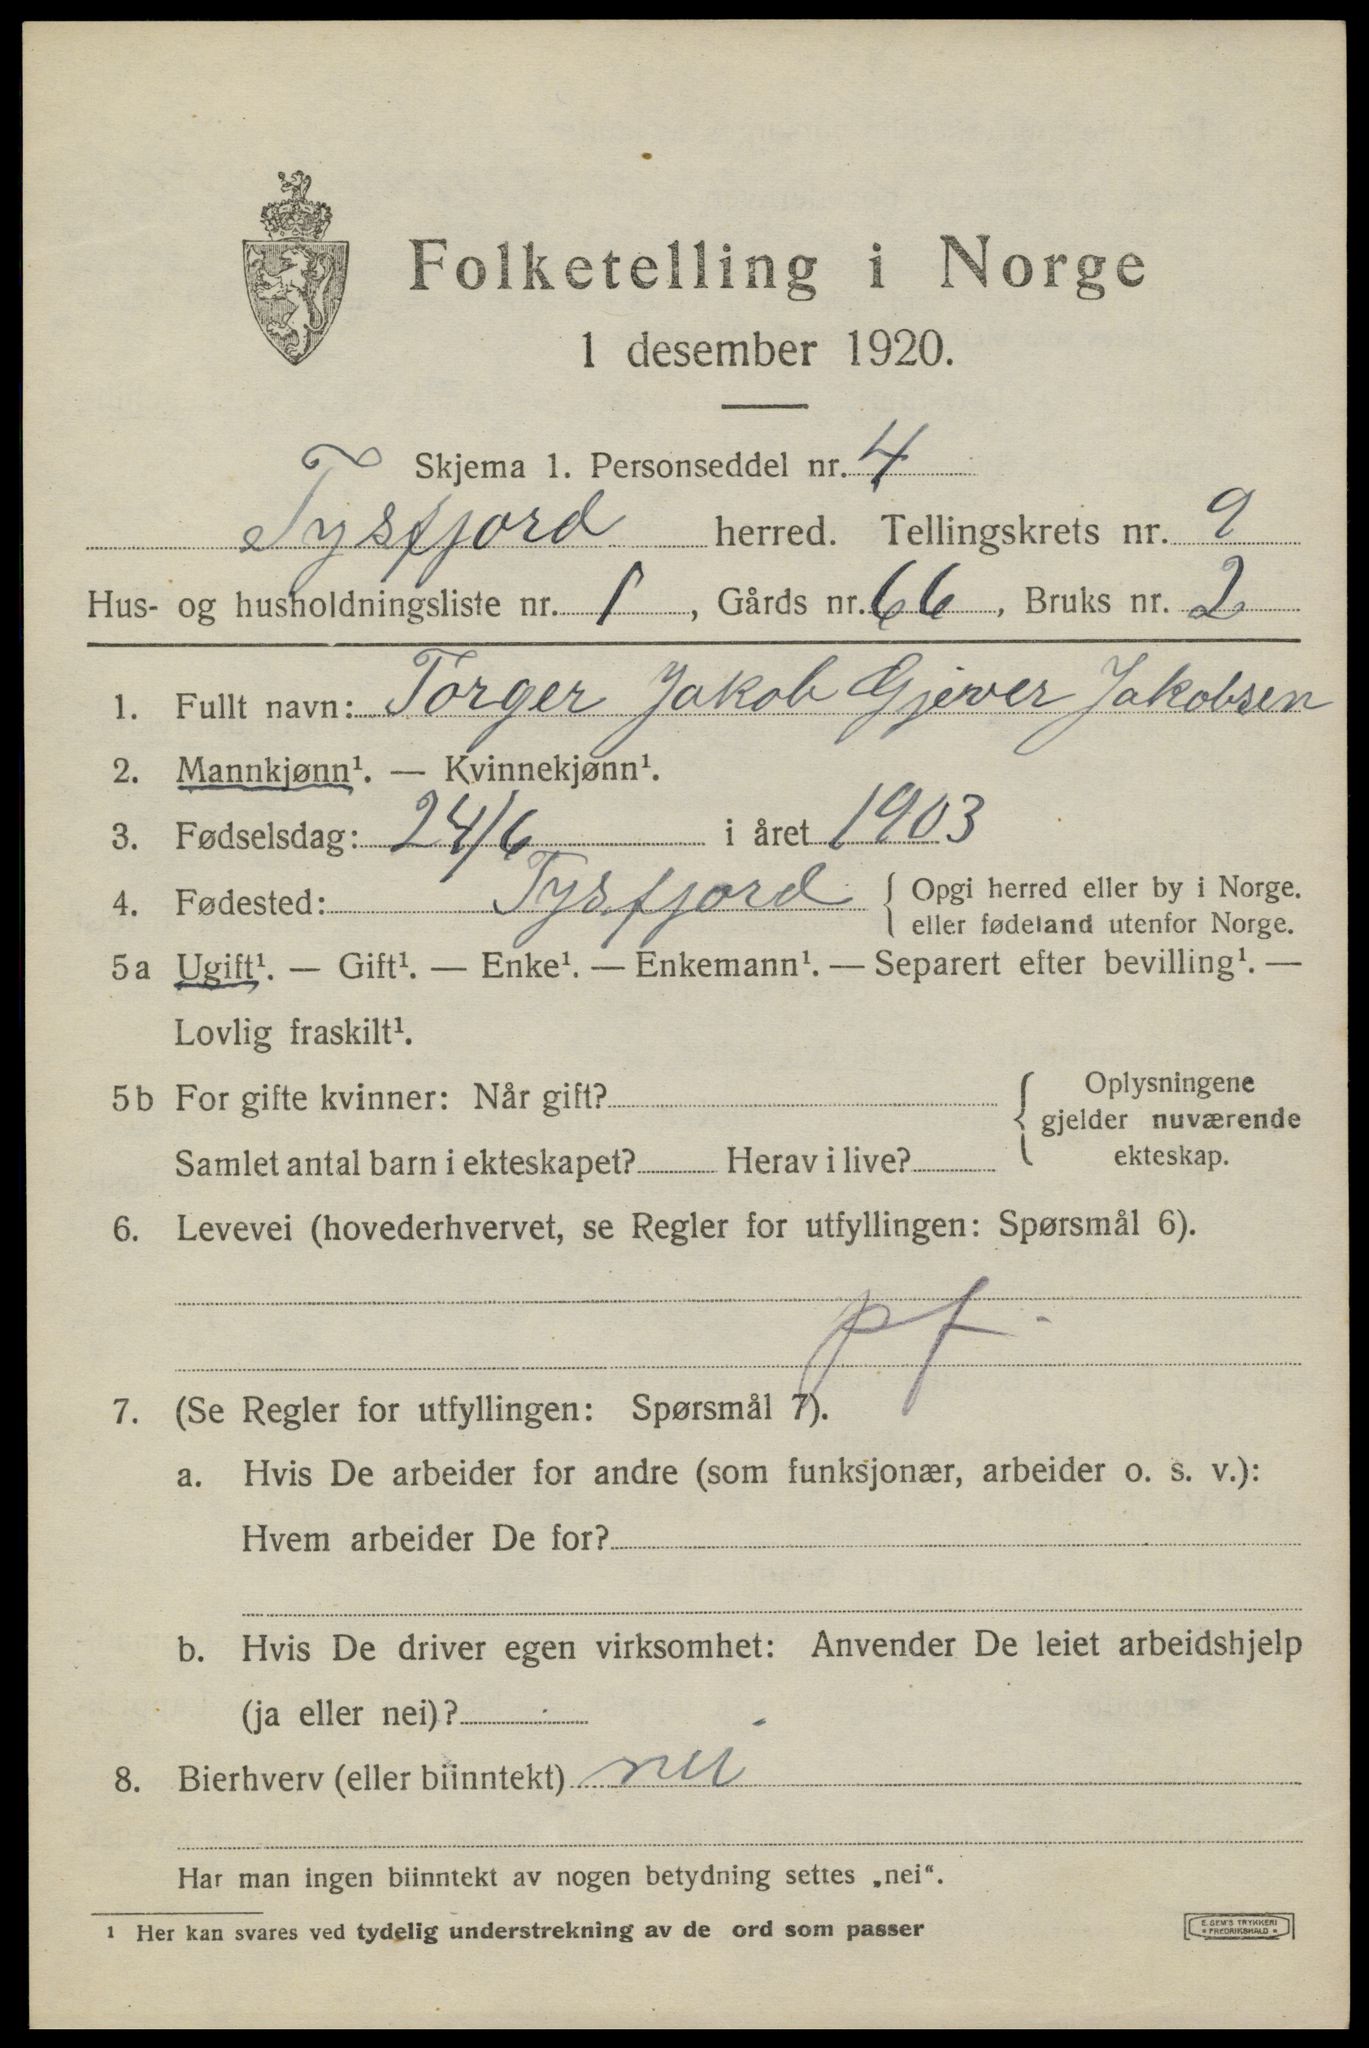 Folketelling i Norge
1 desember 1920.
Skjema 1. Personseddel nr. 4
Tysfjord herred. Tellingskrets nr. 9
Hus- og husholdningsliste nr. 1, Gårds nr. 66, Bruks nr. 2
1. Fullt navn: Torger Jakob Gjever Jakobsen
2. Mannkjønn¹. — Kvinnekjønn¹.
3. Fødselsdag: 24/6 i året 1903
4. Fødested: Tysfjord { Opgi herred eller by i Norge.
eller fødeland utenfor Norge.
5a Ugift¹. — Gift¹. — Enke¹. — Enkemann¹. — Separert efter bevilling¹. —
Lovlig fraskilt¹.
5b For gifte kvinner: Når gift? { Oplysningene
gjelder nuværende
Samlet antal barn i ekteskapet? Herav i live? ekteskap.
6. Levevei (hovederhvervet, se Regler for utfyllingen: Spørsmål 6).
pf.
7. (Se Regler for utfyllingen: Spørsmål 7).
a. Hvis De arbeider for andre (som funksjonær, arbeider o. s. v.):
Hvem arbeider De for?
b. Hvis De driver egen virksomhet: Anvender De leiet arbeidshjelp
(ja eller nei)?
8. Bierhverv (eller biinntekt) nei
Har man ingen biinntekt av nogen betydning settes „nei“.
1 Her kan svares ved tydelig understrekning av de ord som passer
E. SEM'S TRYKKERI
FREDRIKSHALD